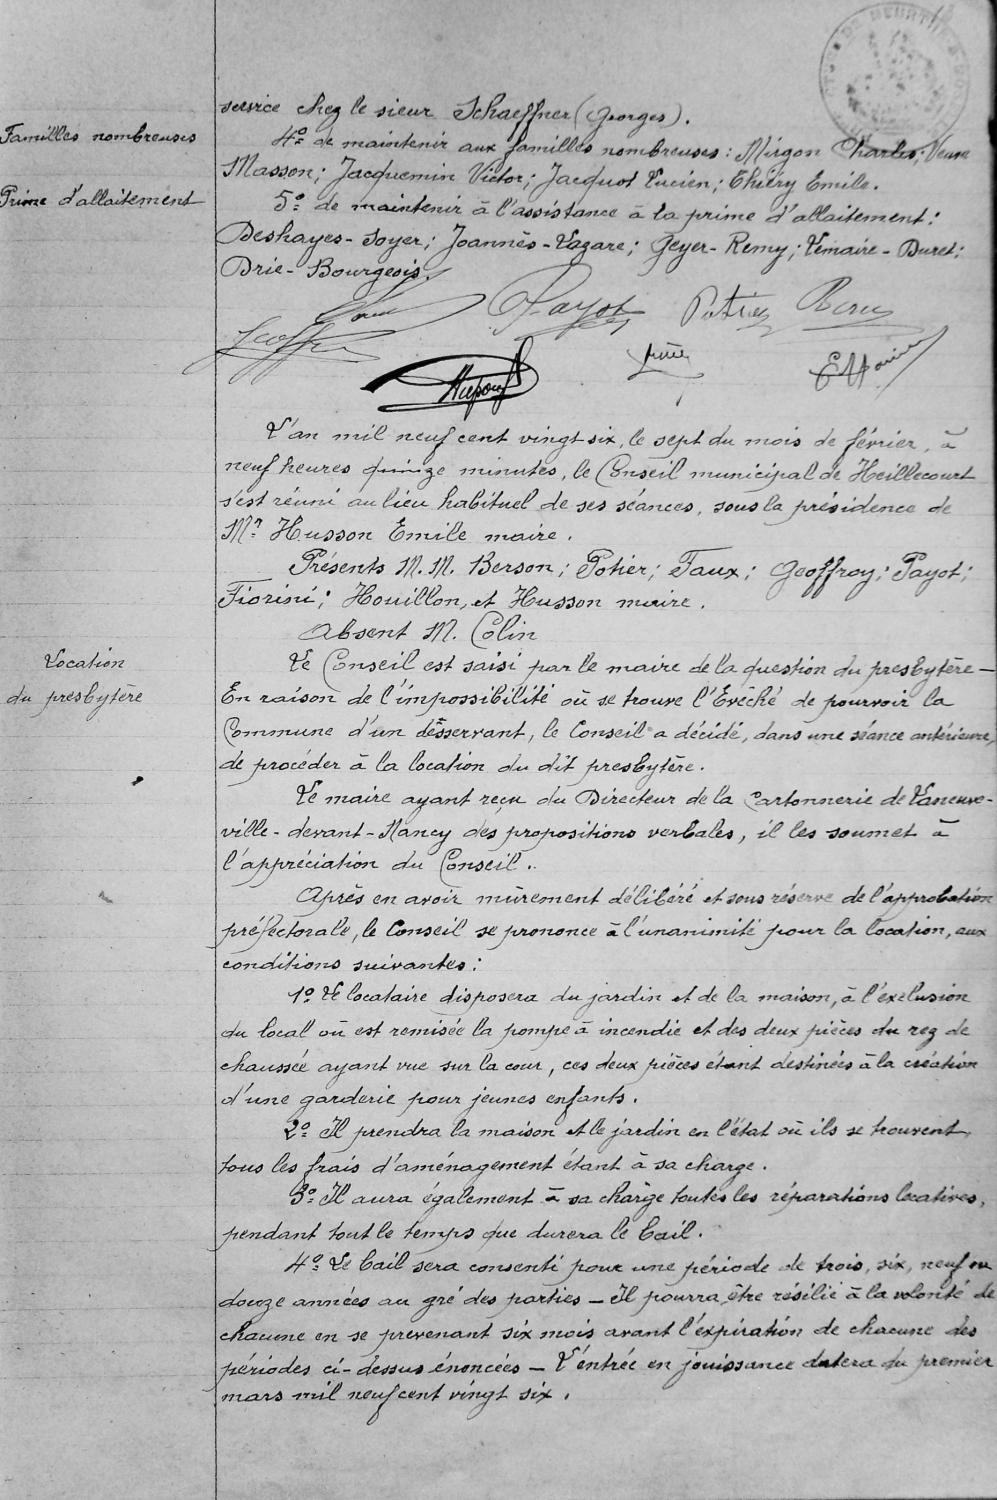 service chez le sieur Schaeffner (Georges).
Familles nombreuses
4º de maintenir aux familles nombreuses : Mirgon Charles; Veuve
Masson; Jacquemin Victor; Jacquot Lucien; Thiéry Emile.
Prime d'allaitement
5º de maintenir à l'assistance à la prime d'allaitement :
Deshayes-Soyer; Joannès-Lagare; Geyer-Remy; Lemaire-Duret;
Drie-Bourgeois.
Payot
L'an mil neuf cent vingt six, le sept du mois de février, à
neuf heures quinze minutes, le Conseil municipal de Heillecourt
s'est réuni au lieu habituel de ses séances, sous la présidence de
Mr Husson Emile maire.
Présents M. M. Berson; Potier; Faux; Geoffroy; Payot;
Fiorini; Houillon, et Husson maire.
Absent M. Colin
Location
du presbytère
Le Conseil est saisi par le maire de la question du presbytère —
En raison de l'impossibilité où se trouve l'Evêché de pourvoir la
Commune d'un desservant, le Conseil a décidé, dans une séance antérieure,
de procéder à la location du dit presbytère.
Le maire ayant reçu du Directeur de la Cartonnerie de Laneuve-
ville-devant-Nancy des propositions verbales, il les soumet à
l'appréciation du Conseil.
Après en avoir mûrement délibéré et sous réserve de l'approbation
préfectorale, le Conseil se prononce à l'unanimité pour la location, aux
conditions suivantes :
1º Le locataire disposera du jardin et de la maison, à l'exclusion
du local où est remisée la pompe à incendie et des deux pièces du rez de
chaussée ayant vue sur la cour, ces deux pièces étant destinées à la création
d'une garderie pour jeunes enfants.
2º Il prendra la maison et le jardin en l'état où ils se trouvent,
tous les frais d'aménagement étant à sa charge.
3º Il aura également à sa charge toutes les réparations locatives,
pendant tout le temps que durera le bail.
4º Le bail sera consenti pour une période de trois, six, neuf ou
douze années au gré des parties — Il pourra être résilié à la volonté de
chacune en se prevenant six mois avant l'expiration de chacune des
périodes ci-dessus énoncées — L'entrée en jouissance datera du premier
mars mil neuf cent vingt six.